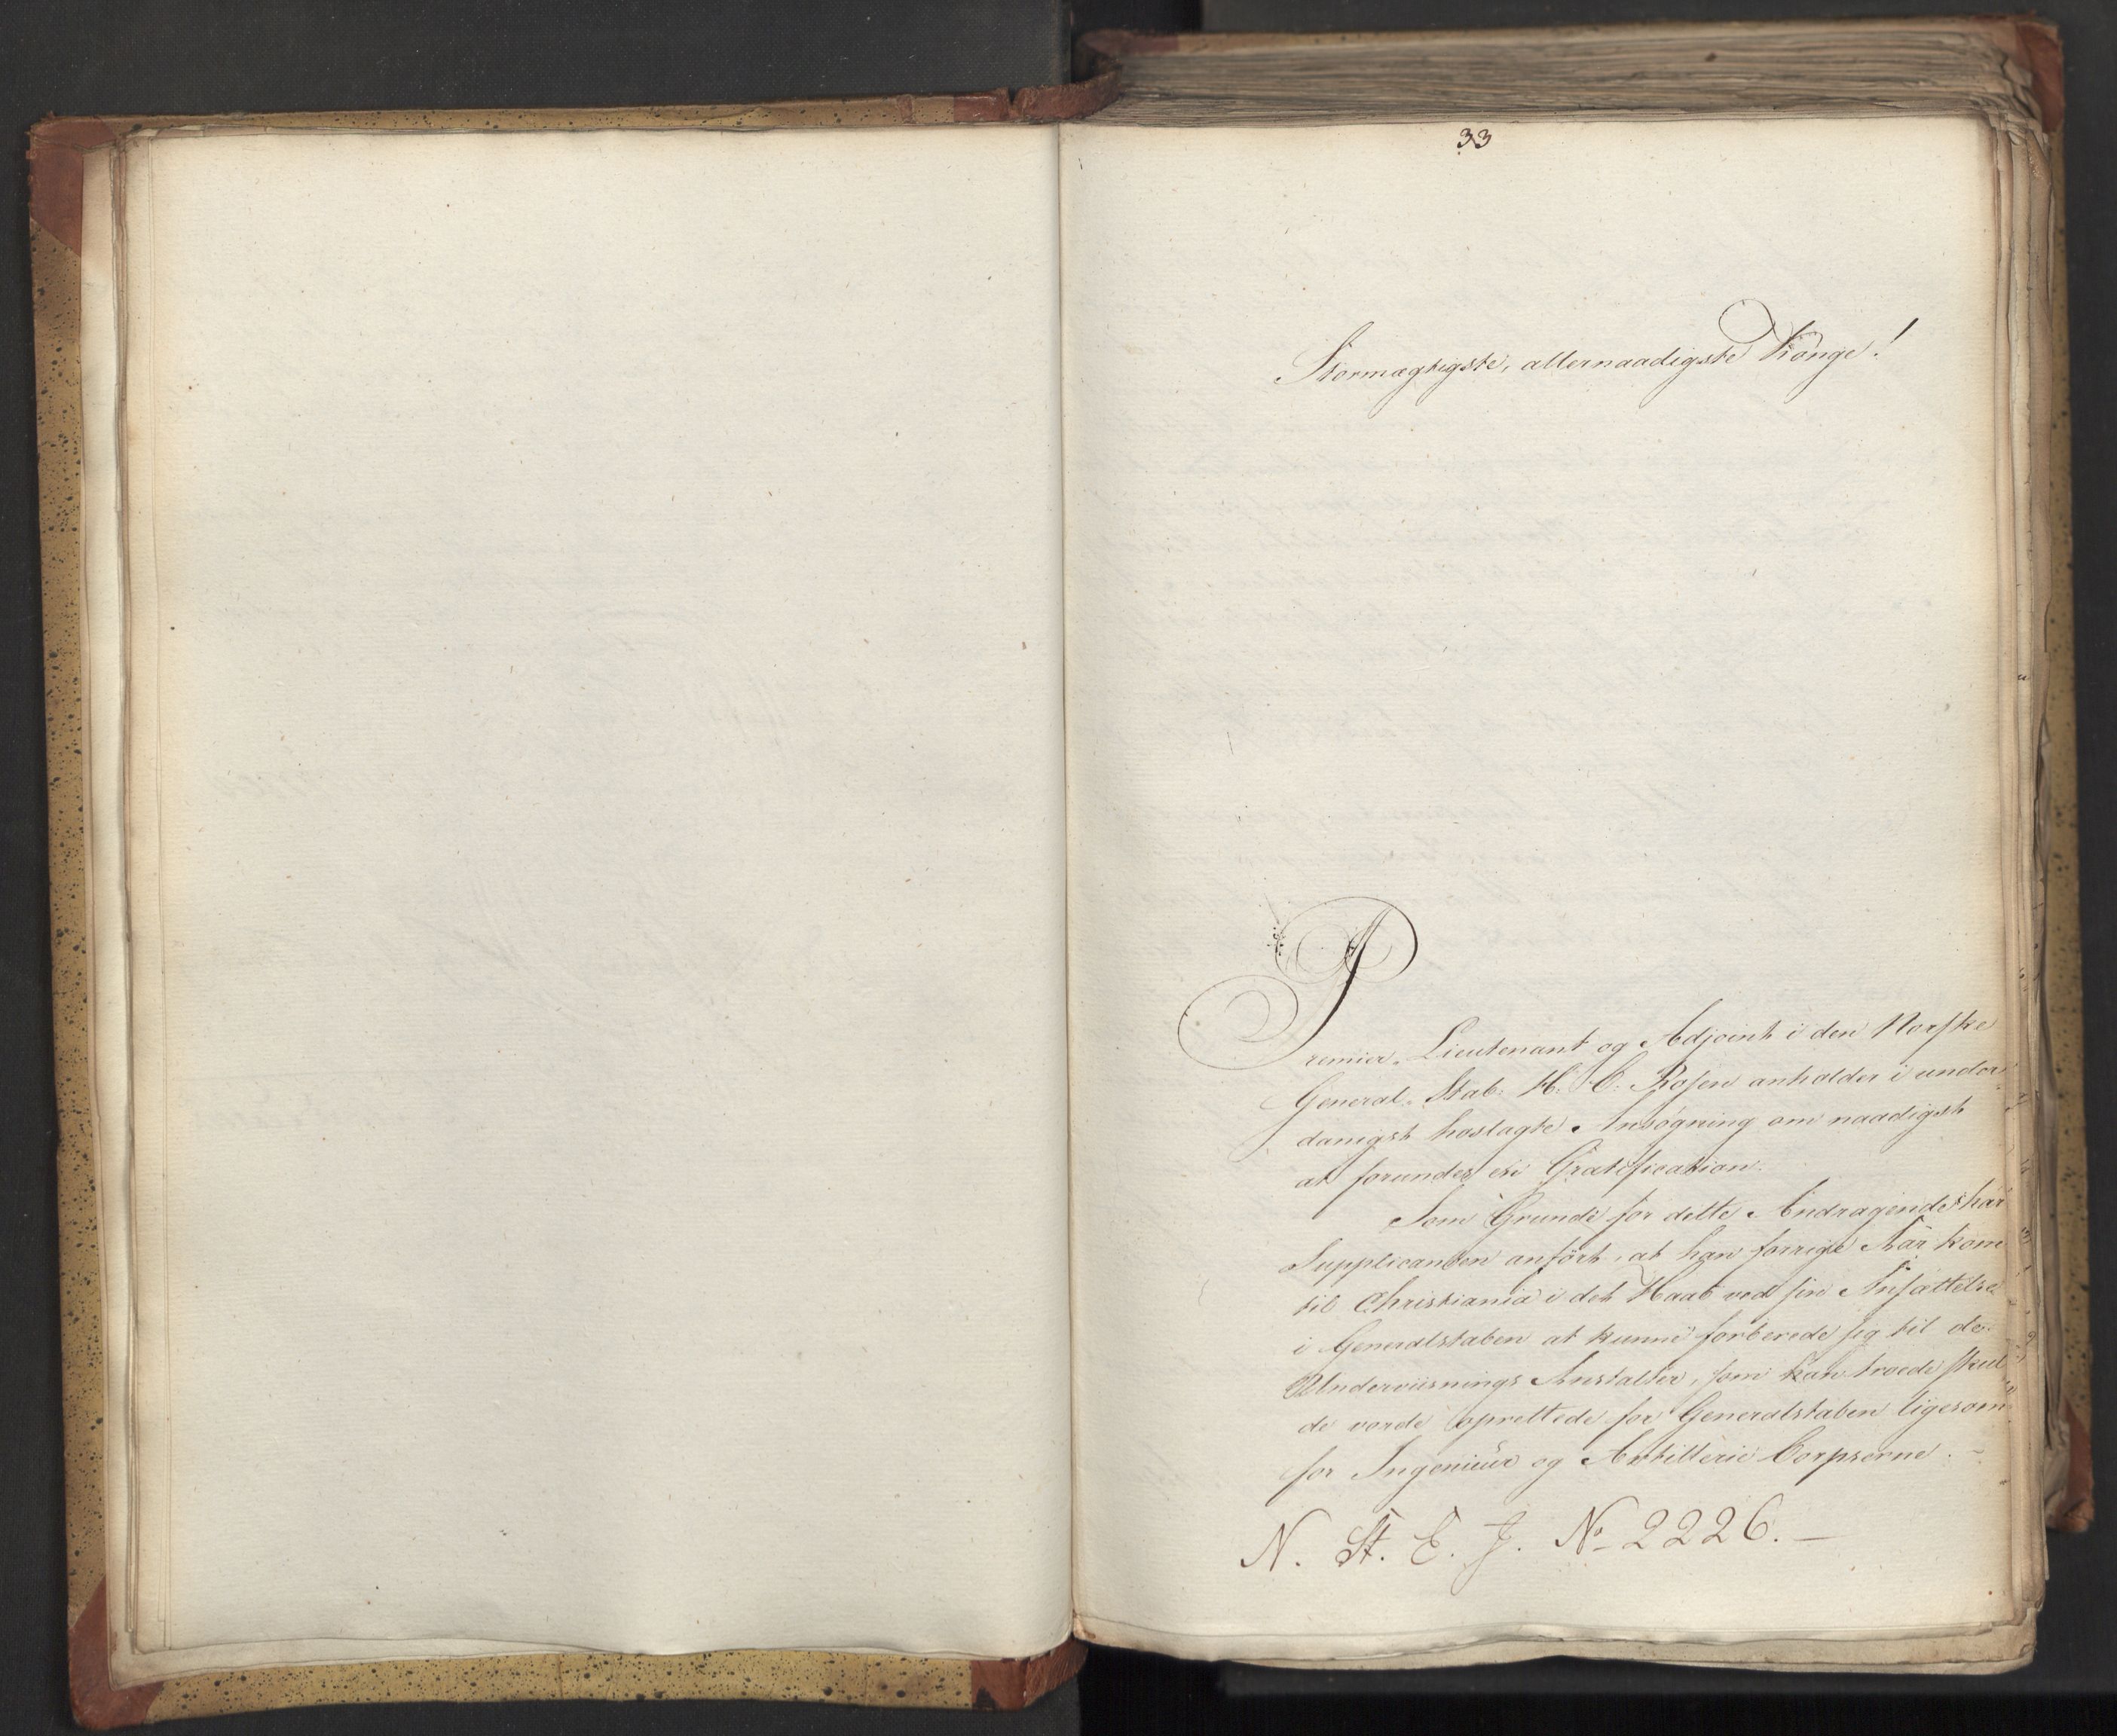 33
Stormægtigste, allernaadigste Konge!
Premier-Lieutenant og Adjoint i den Norske
General-Stab H. C. Rosen anholder i under
danigst hoslagte Ansøgning om naadigst
at forundes en Gratification.
Som Grunde for dette Andragende har
Supplicanten anført, at han forrige Aar kom
til Christiania i det Haab ved sin Ansættelse
i Generalstaben at kunne forberede sig til de
Underviisnings Anstalter, som han troede skul
de vorde oprettede for Generalstaben ligesom
for Ingenieur og Artillerie Corpserne. -
N. St. E. J. No 2226. -